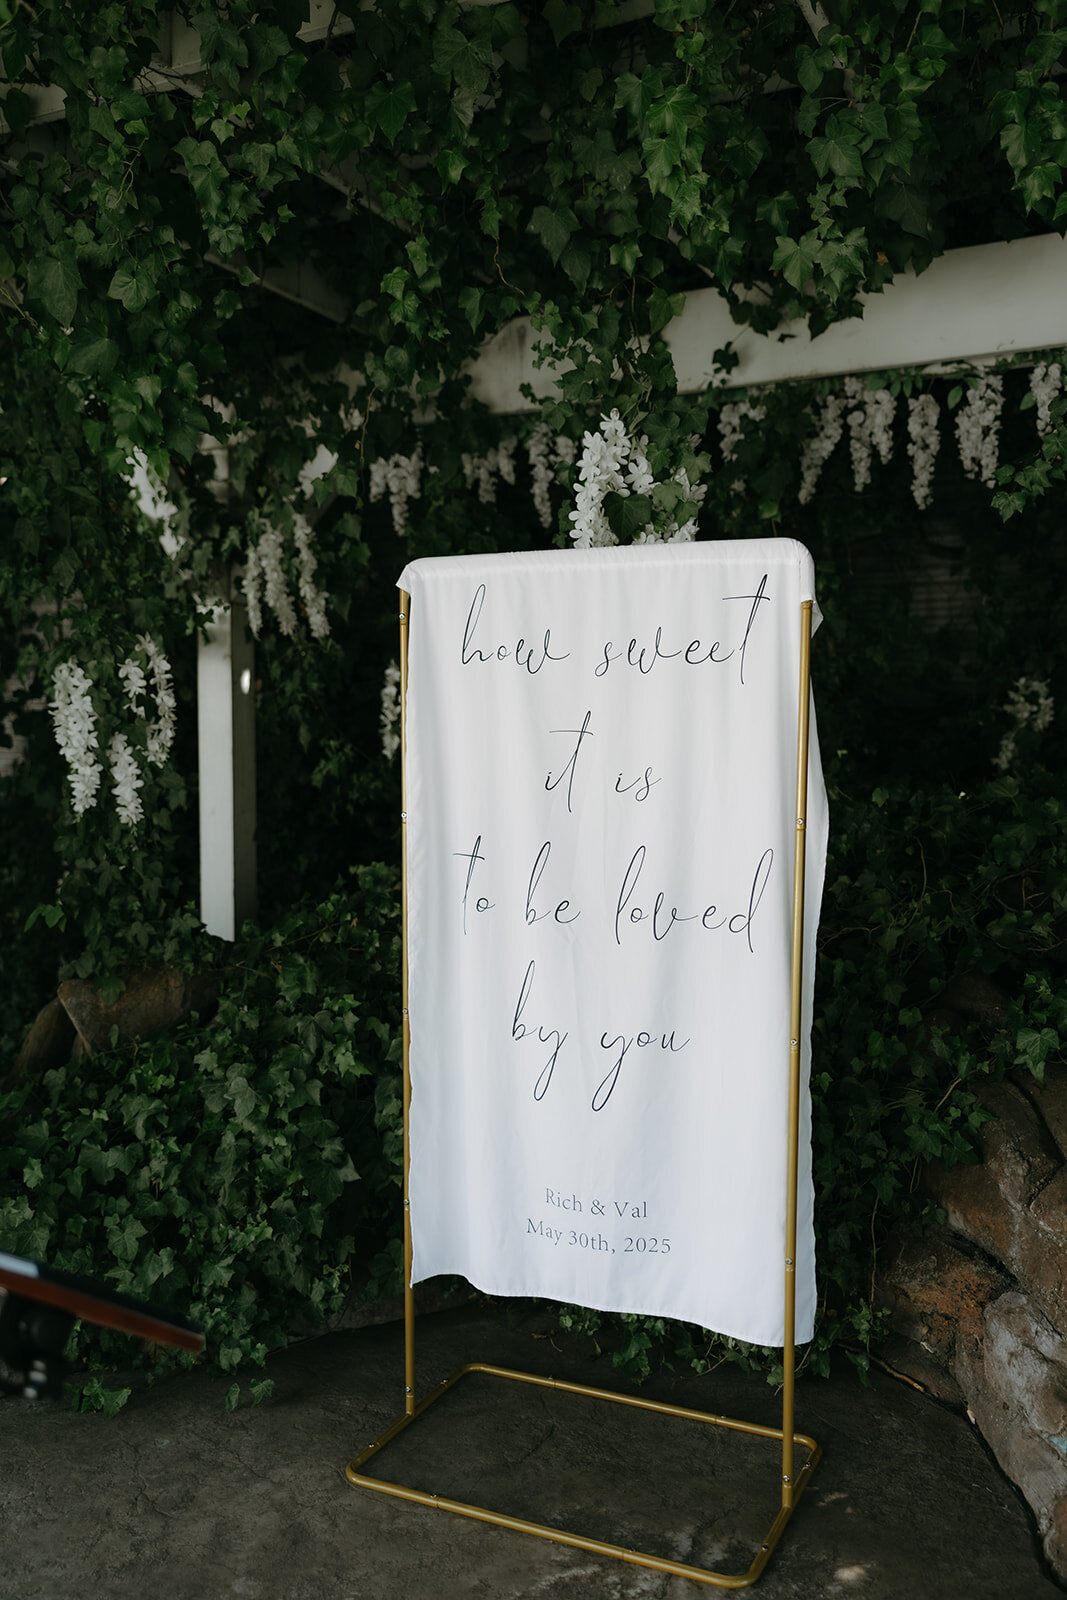 how sweet
it is
to be loved
by you
Rich & Val
May 30th, 2025